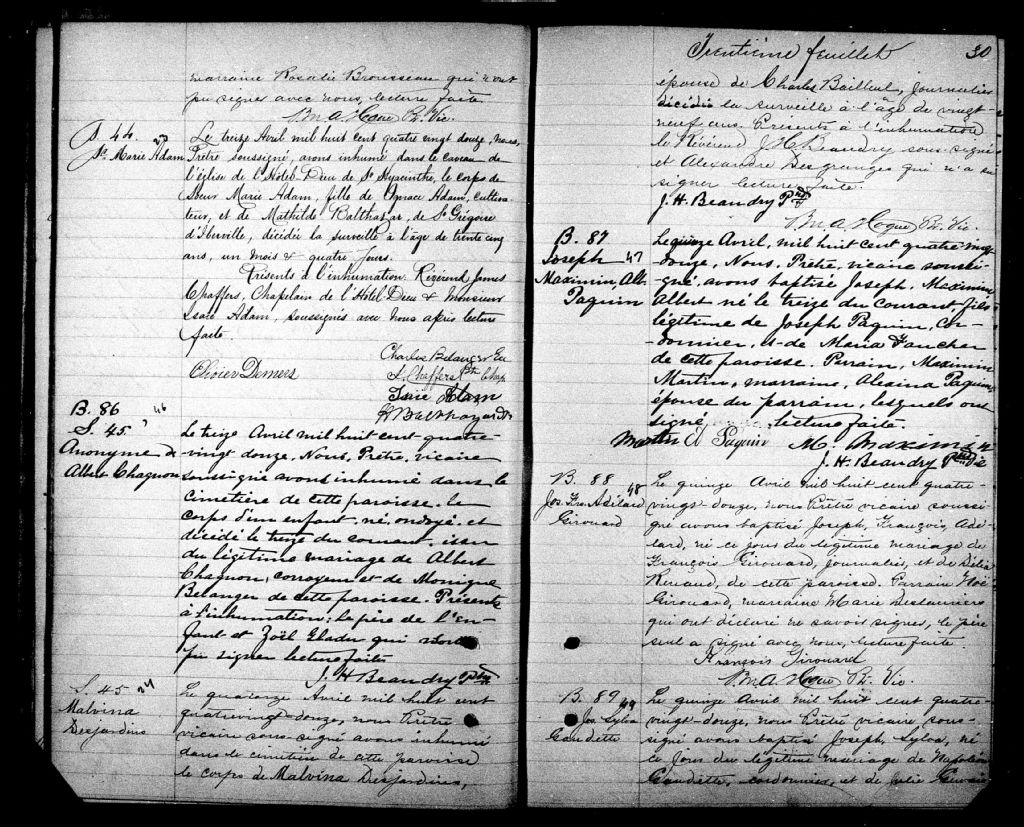 marraine Rosalie Brousseau qui n'ont
pu signer avec nous, lecture faite.
Ptr. Vic.
S. 44
23
Sr. Marie Adam
Le treize Avril mil huit cent quatre vingt douze, nous,
Prêtre soussigné, avons inhumé dans le caveau de
l'église de l'Hotel-Dieu de St Hyacinthe, le corps de
Soeur Marie Adam, fille de Ignace Adam, cultiva-
teur, et de Mathilde Balthazar, de St Grégoire
d'Iberville, décédée la surveille à l'âge de trente cinq
ans, un mois & quatre jours.
Présents à l'inhumation. Révérend James
Chaffers, Chapelain de l'Hotel-Dieu & Monsieur
Isaïe Adam, soussignés avec nous après lecture
faite.
Charles Belanger
Olivier Demers
J. Chaffers Ptre Chap.
Isaie Adam
Balthazard
B. 86
46
S. 45
Anonyme de
Albert Chagnon
Le treize Avril mil huit cent quatre-
vingt douze, Nous, Prêtre, vicaire
soussigné avons inhumé dans le
cimetière de cette paroisse le
corps d'un enfant né, ondoyé et
décédé le treize du courant, issu
du légitime mariage de Albert
Chagnon, corroyeur et de Monique
Belanger de cette paroisse. Présents
à l'inhumation; le père de l'en-
fant et Zoël qui n'ont
pu signer lecture faite
J. H. Beaudry Ptre
S. 45
24
Malvina
Desjardins
Le quatorze Avril mil huit cent
quatrevingt-douze, nous Prêtre
vicaire sous-signé avons inhumé
dans le cimetière de cette paroisse
le corps de Malvina Desjardins,
Trentième feuillet
30
épouse de Charles Bailleul, journalier
décédée la surveille à l'âge de vingt
neuf ans. Présents à l'inhumation
le Révérend J H Beaudry sous-signé
et Alexandre Desgranges qui n'a su
signer lecture faite.
J. H. Beaudry Ptre
Ptr. Vic.
B. 87
Joseph 47
Maximin Alb.
Paquin
Le quinze Avril, mil huit cent quatre vingt
douze, Nous, Prêtre, vicaire soussi-
gné, avons baptisé Joseph, Maximin,
Albert né le treize du courant, fils
légitime de Joseph Paquin, Cor-
donnier, et de Maria Faucher
de cette paroisse. Parrain, Maximin
Martin, marraine, Alexina Paquin
épouse du parrain, lesquels ont
signé, lecture faite.
Martin A Paquin
M. Maximin
J. H. Beaudry Ptre Vic
B. 88
48
Jos. Frs. Adélard
Girouard
Le quinze Avril mil huit cent quatre-
vingt-douze, nous Prêtre vicaire soussi-
gné avons baptisé Joseph, François, Adé-
lard, né ce jour du légitime mariage de
François Girouard, journalier, et de Délia
Renaud, de cette paroisse. Parrain Noé
Girouard, marraine Marie Deslauriers
qui ont déclaré ne savoir signer, le père
seul a signé avec nous, lecture faite.
François Girouard
Ptr. Vic.
B. 89
49
Jos. Sylva
Gaudette
Le quinze Avril, mil huit cent quatre-
vingt-douze, nous Prêtre vicaire, sous-
signé avons baptisé Joseph, Sylva, né
ce jour du légitime mariage de Napoléon
Gaudette, cordonnier, et de Julie Gervais